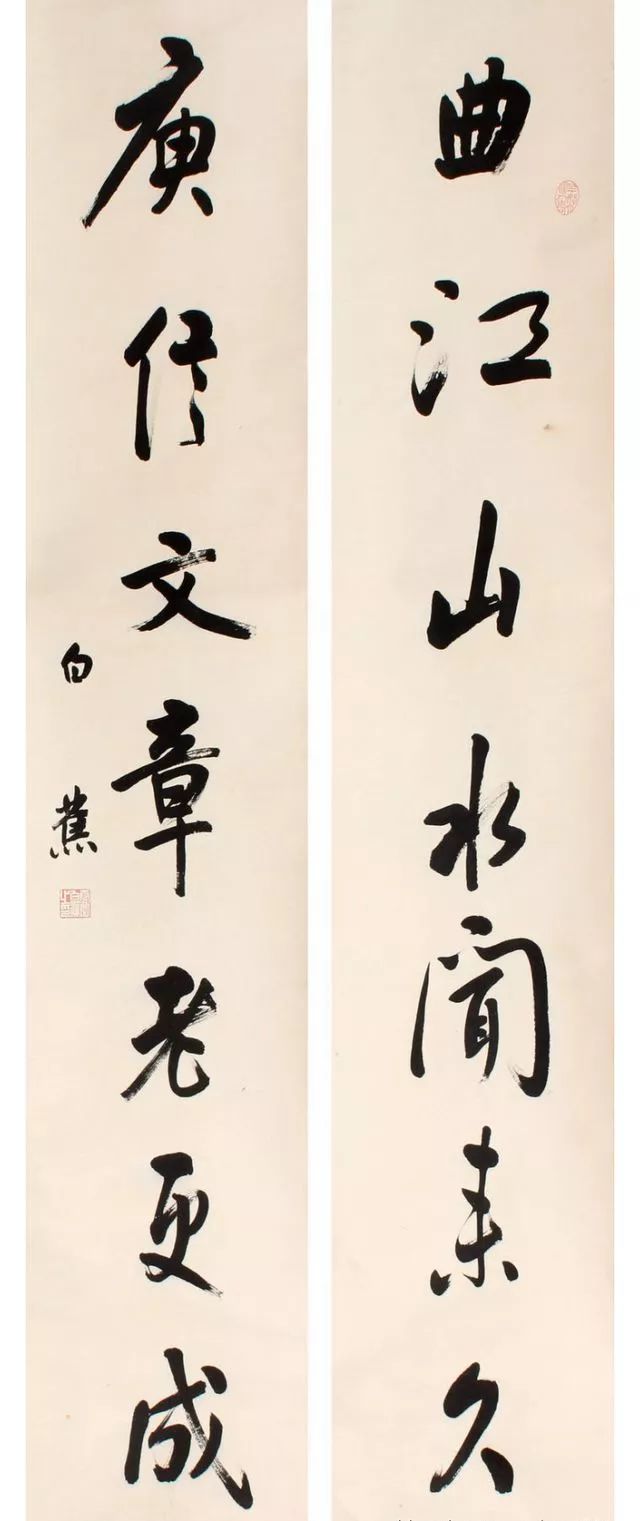 曲江山水聞来久
庾信文章老更成
白蕉